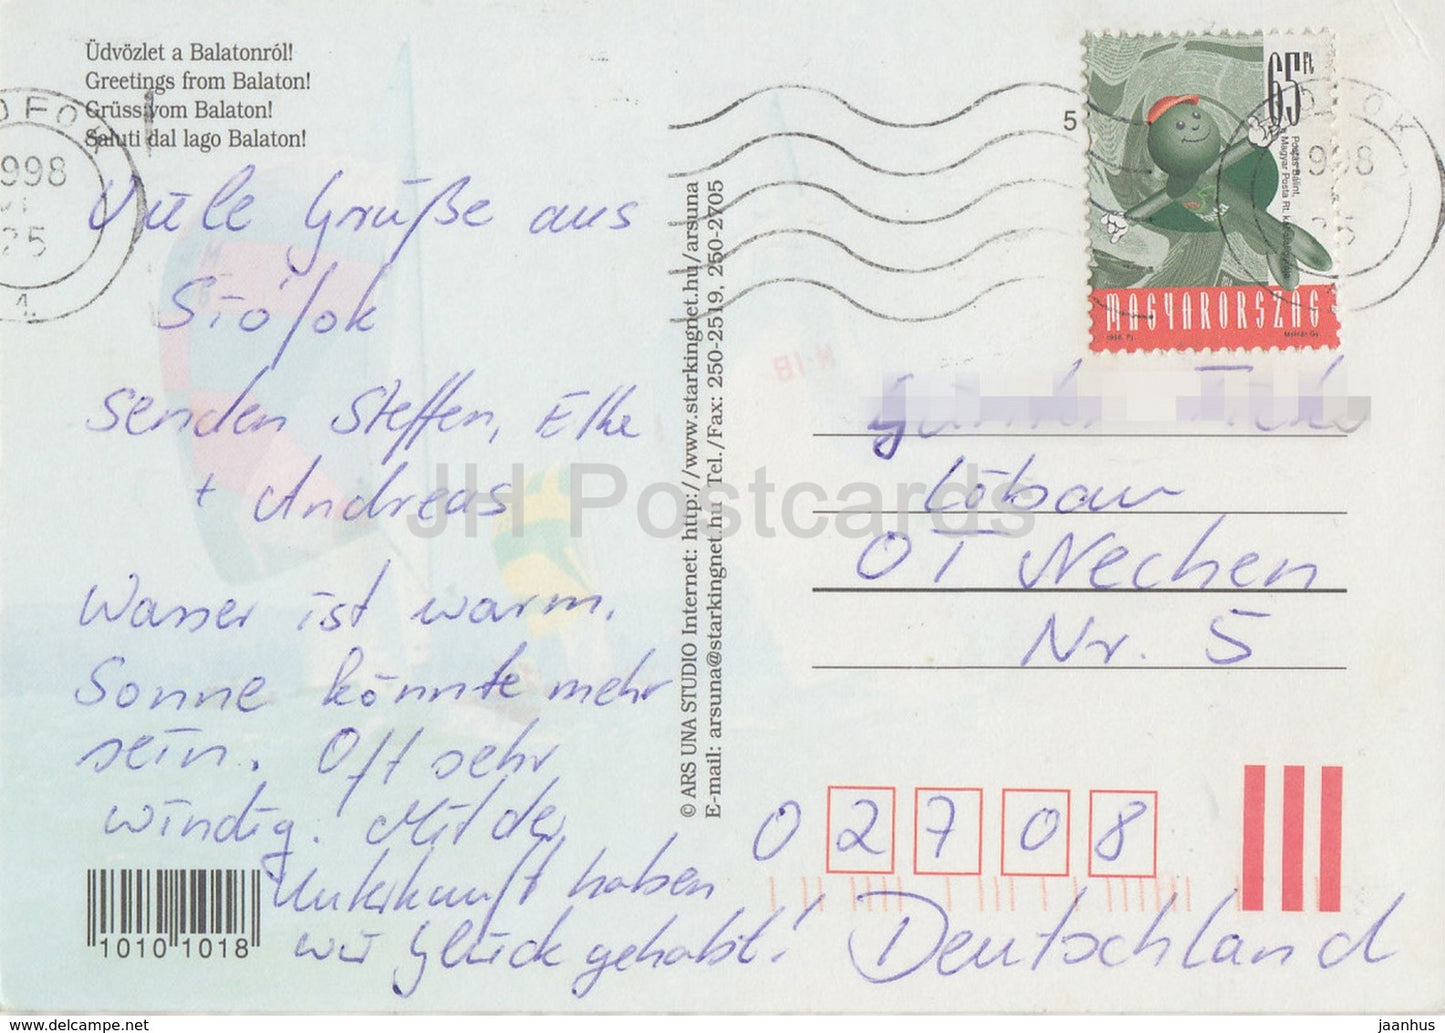 Üdvözlet a Balatonról!
Greetings from Balaton!
Grüss vom Balaton!
Saluti dal lago Balaton!
Viele Grüße aus
Siófok
senden Steffen, Elke
+ Andreas
Wasser ist warm.
Sonne könnte mehr
sein. Oft sehr
windig. Mit der
Unterkunft haben
wir Glück gehabt!
1010 1018
© ARS UNA STUDIO Internet: http://www.starkingnet.hu/arsuna
E-mail: arsuna@starkingnet.hu Tel./Fax: 250-2519, 250-2705
JH Postcards
1998
25
4
5
65 Ft
Postás Bálint,
MAGYARORSZÁG
1998
25
Löbau
OT Nechen
Nr. 5
0 2 7 0 8
Deutschland
jaanhus__________eu-m.delcampe.net